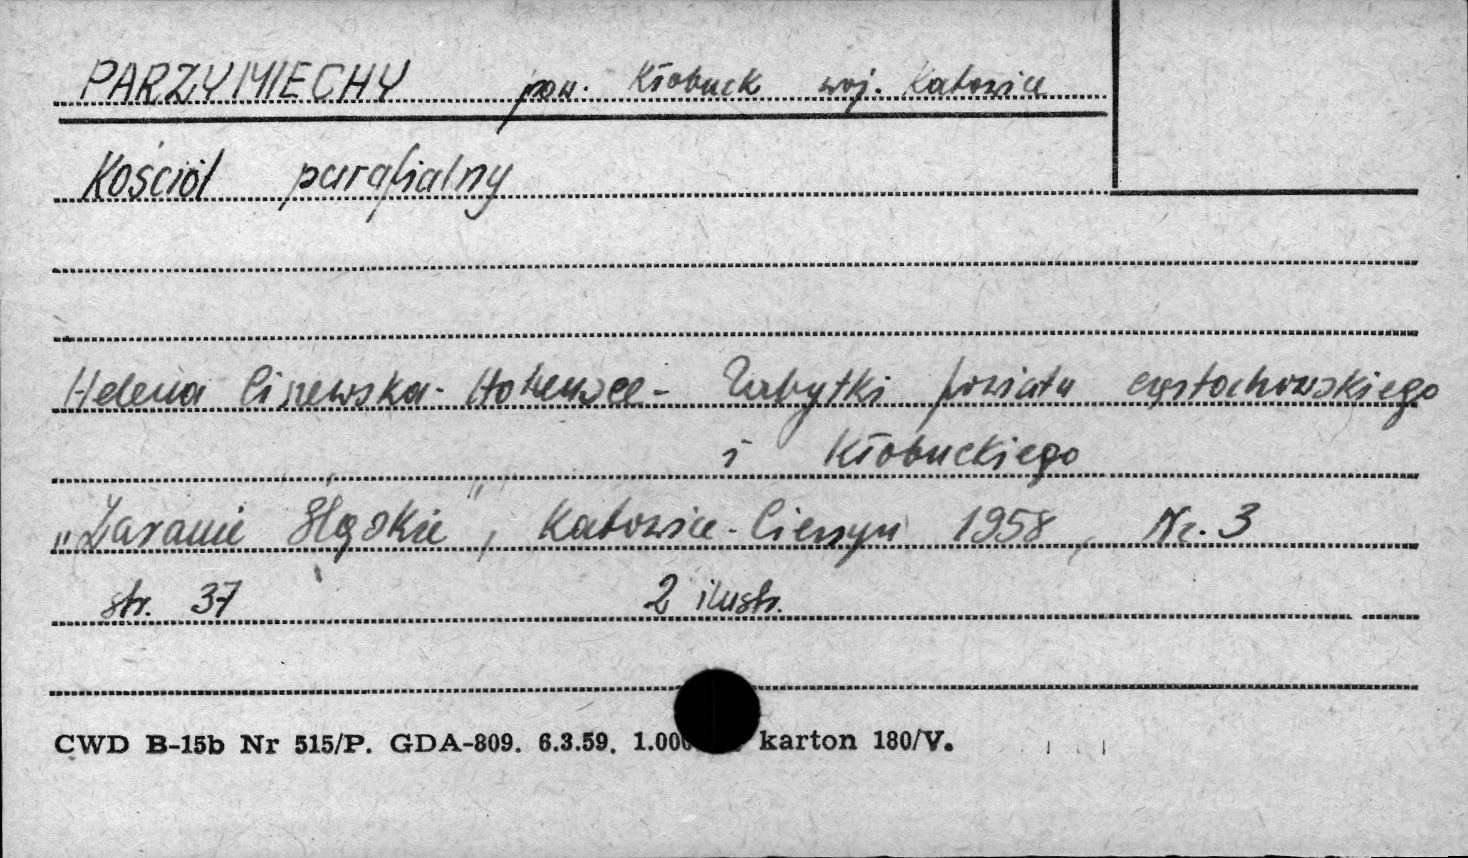 PARZYMIECHY pow. Kłobuck woj. Katowice
Kościół parafialny
Helena Ciszewska- - Zabytki powiatu częstochowskiego
i Kłobuckiego
„Zaranie Śląskie", Katowice-Cieszyn 1958, Nr. 3
str. 37 2 ilustr.
CWD B-15b Nr 515/P. GDA-809. 6.3.59. 1.000 karton 180/V.